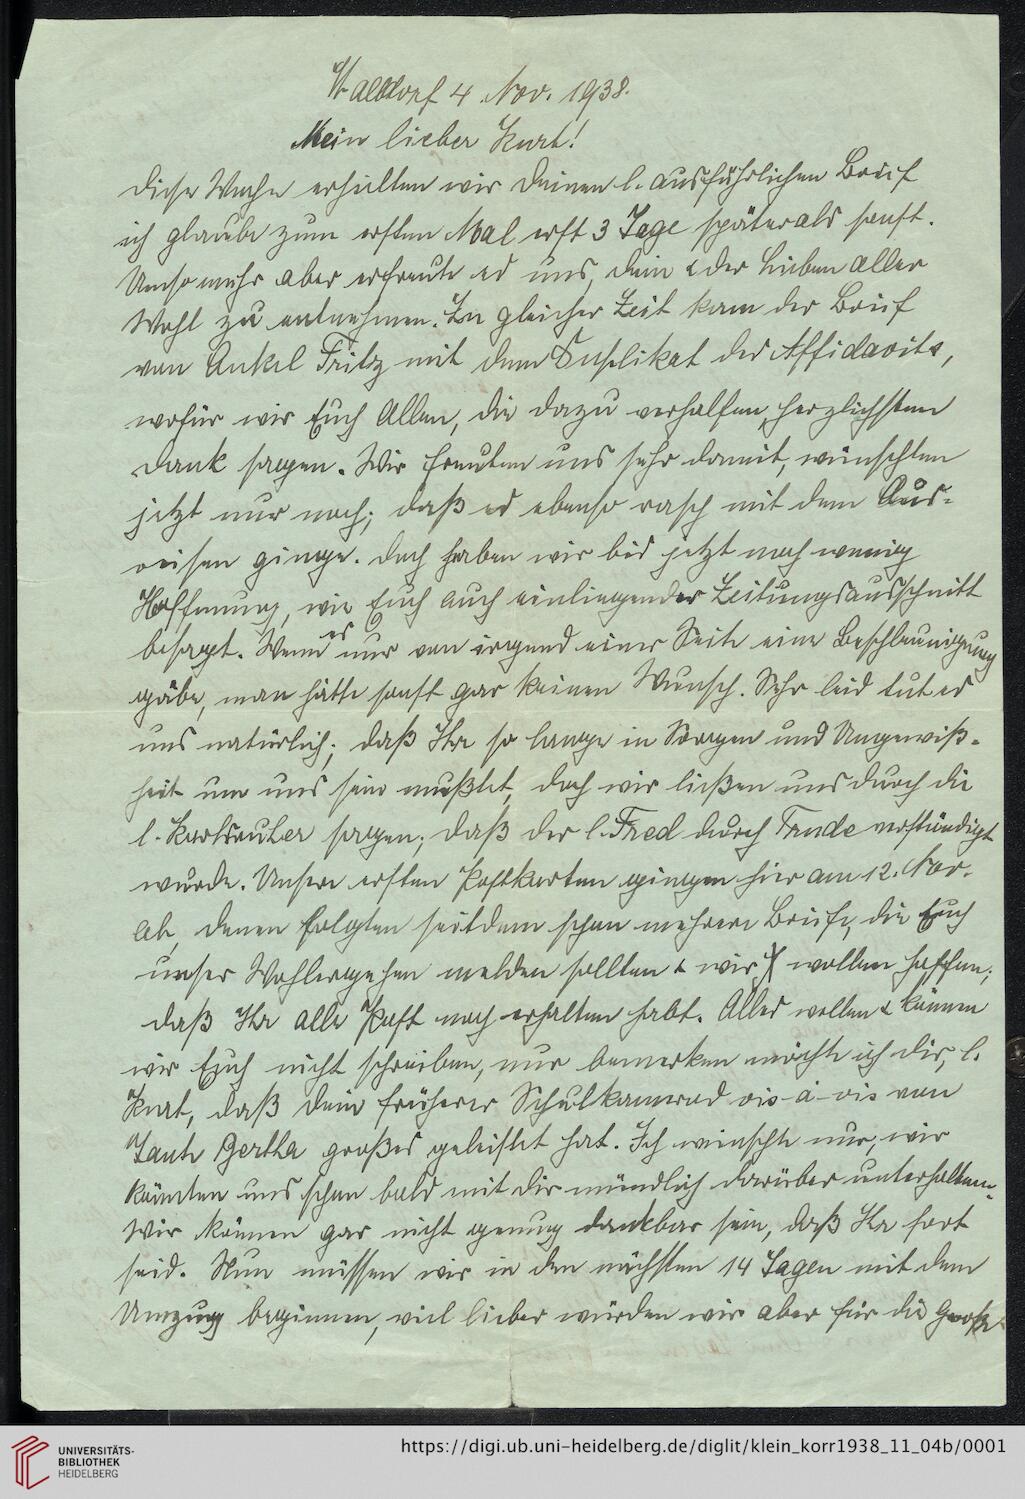 Walldorf 4 Nov. 1938.
Mein lieber Kurt!
Diese Woche erhielten wir Deinen l. ausführlichen Brief
ich glaube zum ersten Mal erst 3 Tage später als sonst.
Umso mehr aber erfreute es uns, Dein & der Lieben aller
Wohl zu entnehmen. Zu gleicher Zeit kam der Brief
von Onkel Fritz mit dem Duplikat des Affidavits,
wofür wir Euch Allen, die dazu verholfen, herzlichsten
Dank sagen. Wir freuten uns sehr damit, wünschten
jetzt nur noch, daß es ebenso rasch mit dem Aus-
reisen ginge. Doch haben wir bis jetzt noch wenig
Hoffnung, wie Euch auch einliegender Zeitungsausschnitt
besagt. Wenn es nur von irgend einer Seite eine Beschleunigung
gäbe, man hätte sonst gar keinen Wunsch. Sehr leid tut es
uns natürlich, daß Ihr so lange in Sorgen und Ungewiß-
heit um uns sein mußtet, doch wir ließen uns durch die
l. Karlsruher sagen, daß der l. Fred durch Trude verständigt
wurde. Unsere ersten Postkarten gingen hier am 12. Nov.
ab, denen folgten seitdem schon mehrere Briefe, die Euch
unser Wohlergehen melden sollten & wir wollen hoffen,
daß Ihr alle Post noch erhalten habt. Alles wollen & können
wir Euch nicht schreiben, nur bemerken möchte ich Dir, l.
Kurt, daß Dein früherer Schulkamerad vis-à-vis von
Tante Bertha großes geleistet hat. Ich wünschte nur, wir
könnten uns schon bald mit Dir mündlich darüber unterhalten.
Wir können gar nicht genug dankbar sein, daß Ihr fort
seid. Nun müssen wir in den nächsten 14 Tagen mit dem
Umzug beginnen, viel lieber würden wir aber für die Große
UNIVERSITÄTS-
BIBLIOTHEK
HEIDELBERG
https://digi.ub.uni-heidelberg.de/diglit/klein_korr1938_11_04b/0001